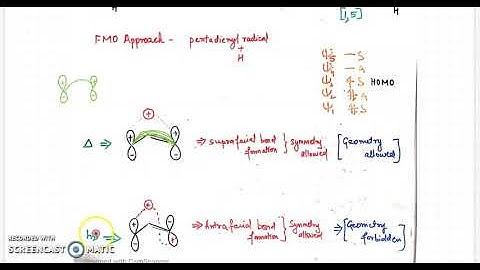 [1,5]
H
H
FMO Approach - pentadienyl radical
+
H
ψ5 — S
ψ4 — A
ψ3 S HOMO
ψ2 A
ψ1 S
+ +
- -
+
Δ ⇒ + + - - ⇒ suprafacial bond formation } symmetry allowed [Geometry allowed]
+
hν ⇒ + + - - ⇒ Antrafacial bond formation } symmetry allowed ⇒ [Geometry forbidden]
RECORDED WITH
SCREENCAST MATIC